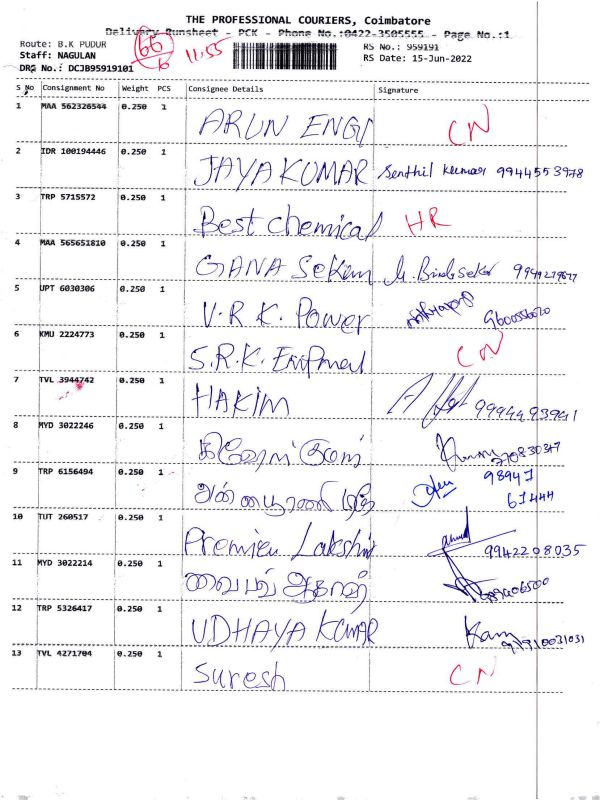 THE PROFESSIONAL COURIERS, Coimbatore
Delivery Runsheet - PCK - Phone No.:0422-3505555 - Page No.:1
Route: B.K PUDUR
RS No.: 959191
Staff: NAGULAN
RS Date: 15-Jun-2022
DRS No.: DCJB95919101
66
6
11.55
S No Consignment No Weight PCS Consignee Details Signature
1 MAA 562326544 0.250 1 ARUN ENGI CN
2 IDR 100194446 0.250 1 JAYA KUMAR Senthil kumar 9944553978
3 TRP 5715572 0.250 1 Best chemical HR
4 MAA 565651810 0.250 1 GANA Sekam
5 UPT 6030306 0.250 1 V.R.K. Power
6 KMU 2224773 0.250 1 S.R.K. CN
7 TVL 3944742 0.250 1 HAKIM
8 MYD 3022246 0.250 1
9 TRP 6156494 0.250 1 98947
61444
10 TUT 260517 0.250 1 Premier Lakshmi 9942208035
11 MYD 3022214 0.250 1
12 TRP 5326417 0.250 1 UDHAYA KUMAR Ram
13 TVL 4271704 0.250 1 Suresh CN